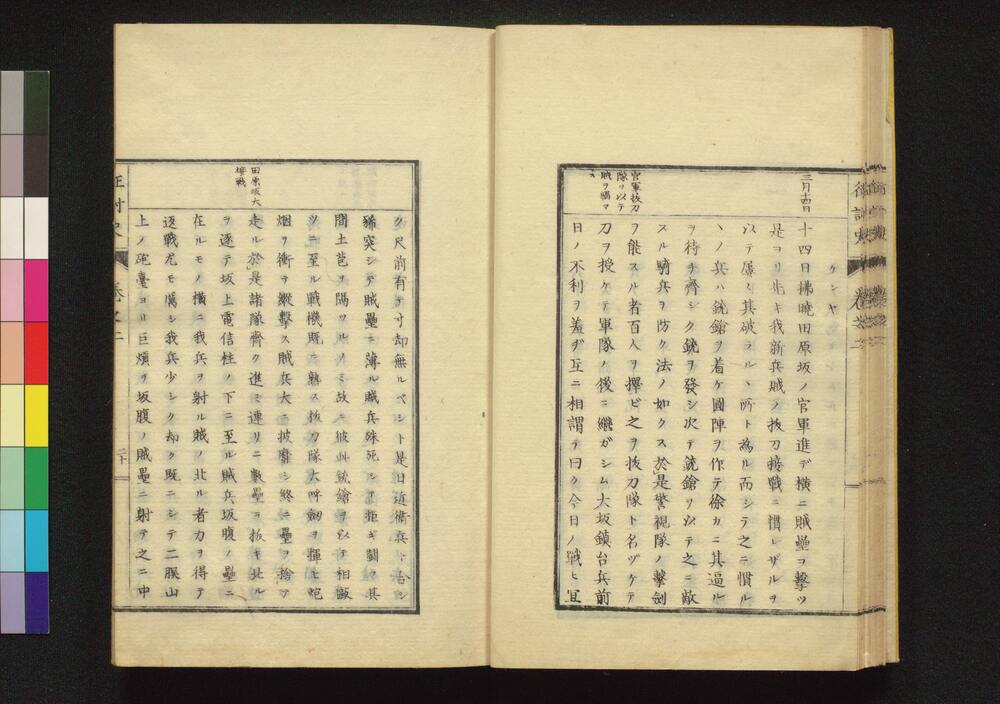 征討史
卷之二
ケンヤ
三月十四日
十四日拂曉田原坂ノ官軍進デ横ニ賊壘ヲ擊ツ
是ヨリ先キ我新兵賊ノ抜刀接戰ニ慣レザルヲ
以テ屢〻其破ラル丶所ト為ル而シテ之ニ慣ル
丶ノ兵ハ銃鎗ヲ着ケ圓陣ヲ作テ徐カニ其逼ル
ヲ待チ齊シク銃ヲ發シ次テ銃鎗ヲ以テ之ニ敵
スル騎兵ヲ防ク法ノ如クス於是警視隊ノ擊劍
官軍抜刀
隊ヲ以テ
賊ヲ惱マ
ス
ヲ能スル者百人ヲ擇ビ之ヲ抜刀隊ト名ヅケテ
刀ヲ授ケテ軍隊ノ後ニ繼ガシム大坂鎮台兵前
日ノ不利ヲ羞ヂ互ニ相謂テ曰ク今日ノ戰ヒ宜
ク尺前有テ寸却無ルベシト是日近衛兵ト合シ
豨突シテ賊壘ニ薄ル賊兵殊死シテ拒ギ鬪フ其
間土芭ヲ隔ツルノミ故ニ彼此銃鎗ヲ以テ相毆
ツニ至ル戰機既ニ熟ス抜刀隊大呼劔ヲ揮ヒ砲
烟ヲ衝ヲ縱擊ス賊兵大ニ披靡シ終ニ壘ヲ捨テ
田原坂大
接戰
走ル於是諸隊齊ク進ミ連リニ數壘ヲ抜キ北ル
ヲ逐テ坂上電信柱ノ下ニ至ル賊兵坂腹ノ壘ニ
在ルモノ横ニ我兵ヲ射ル賊ノ北ル者力ヲ得テ
返戰尤モ厲シ我兵少シク却ク既ニシテ二股山
上ノ砲臺ヨリ巨熕ヲ坂腹ノ賊壘ニ射テ之ニ中
征討史
卷之二
二十